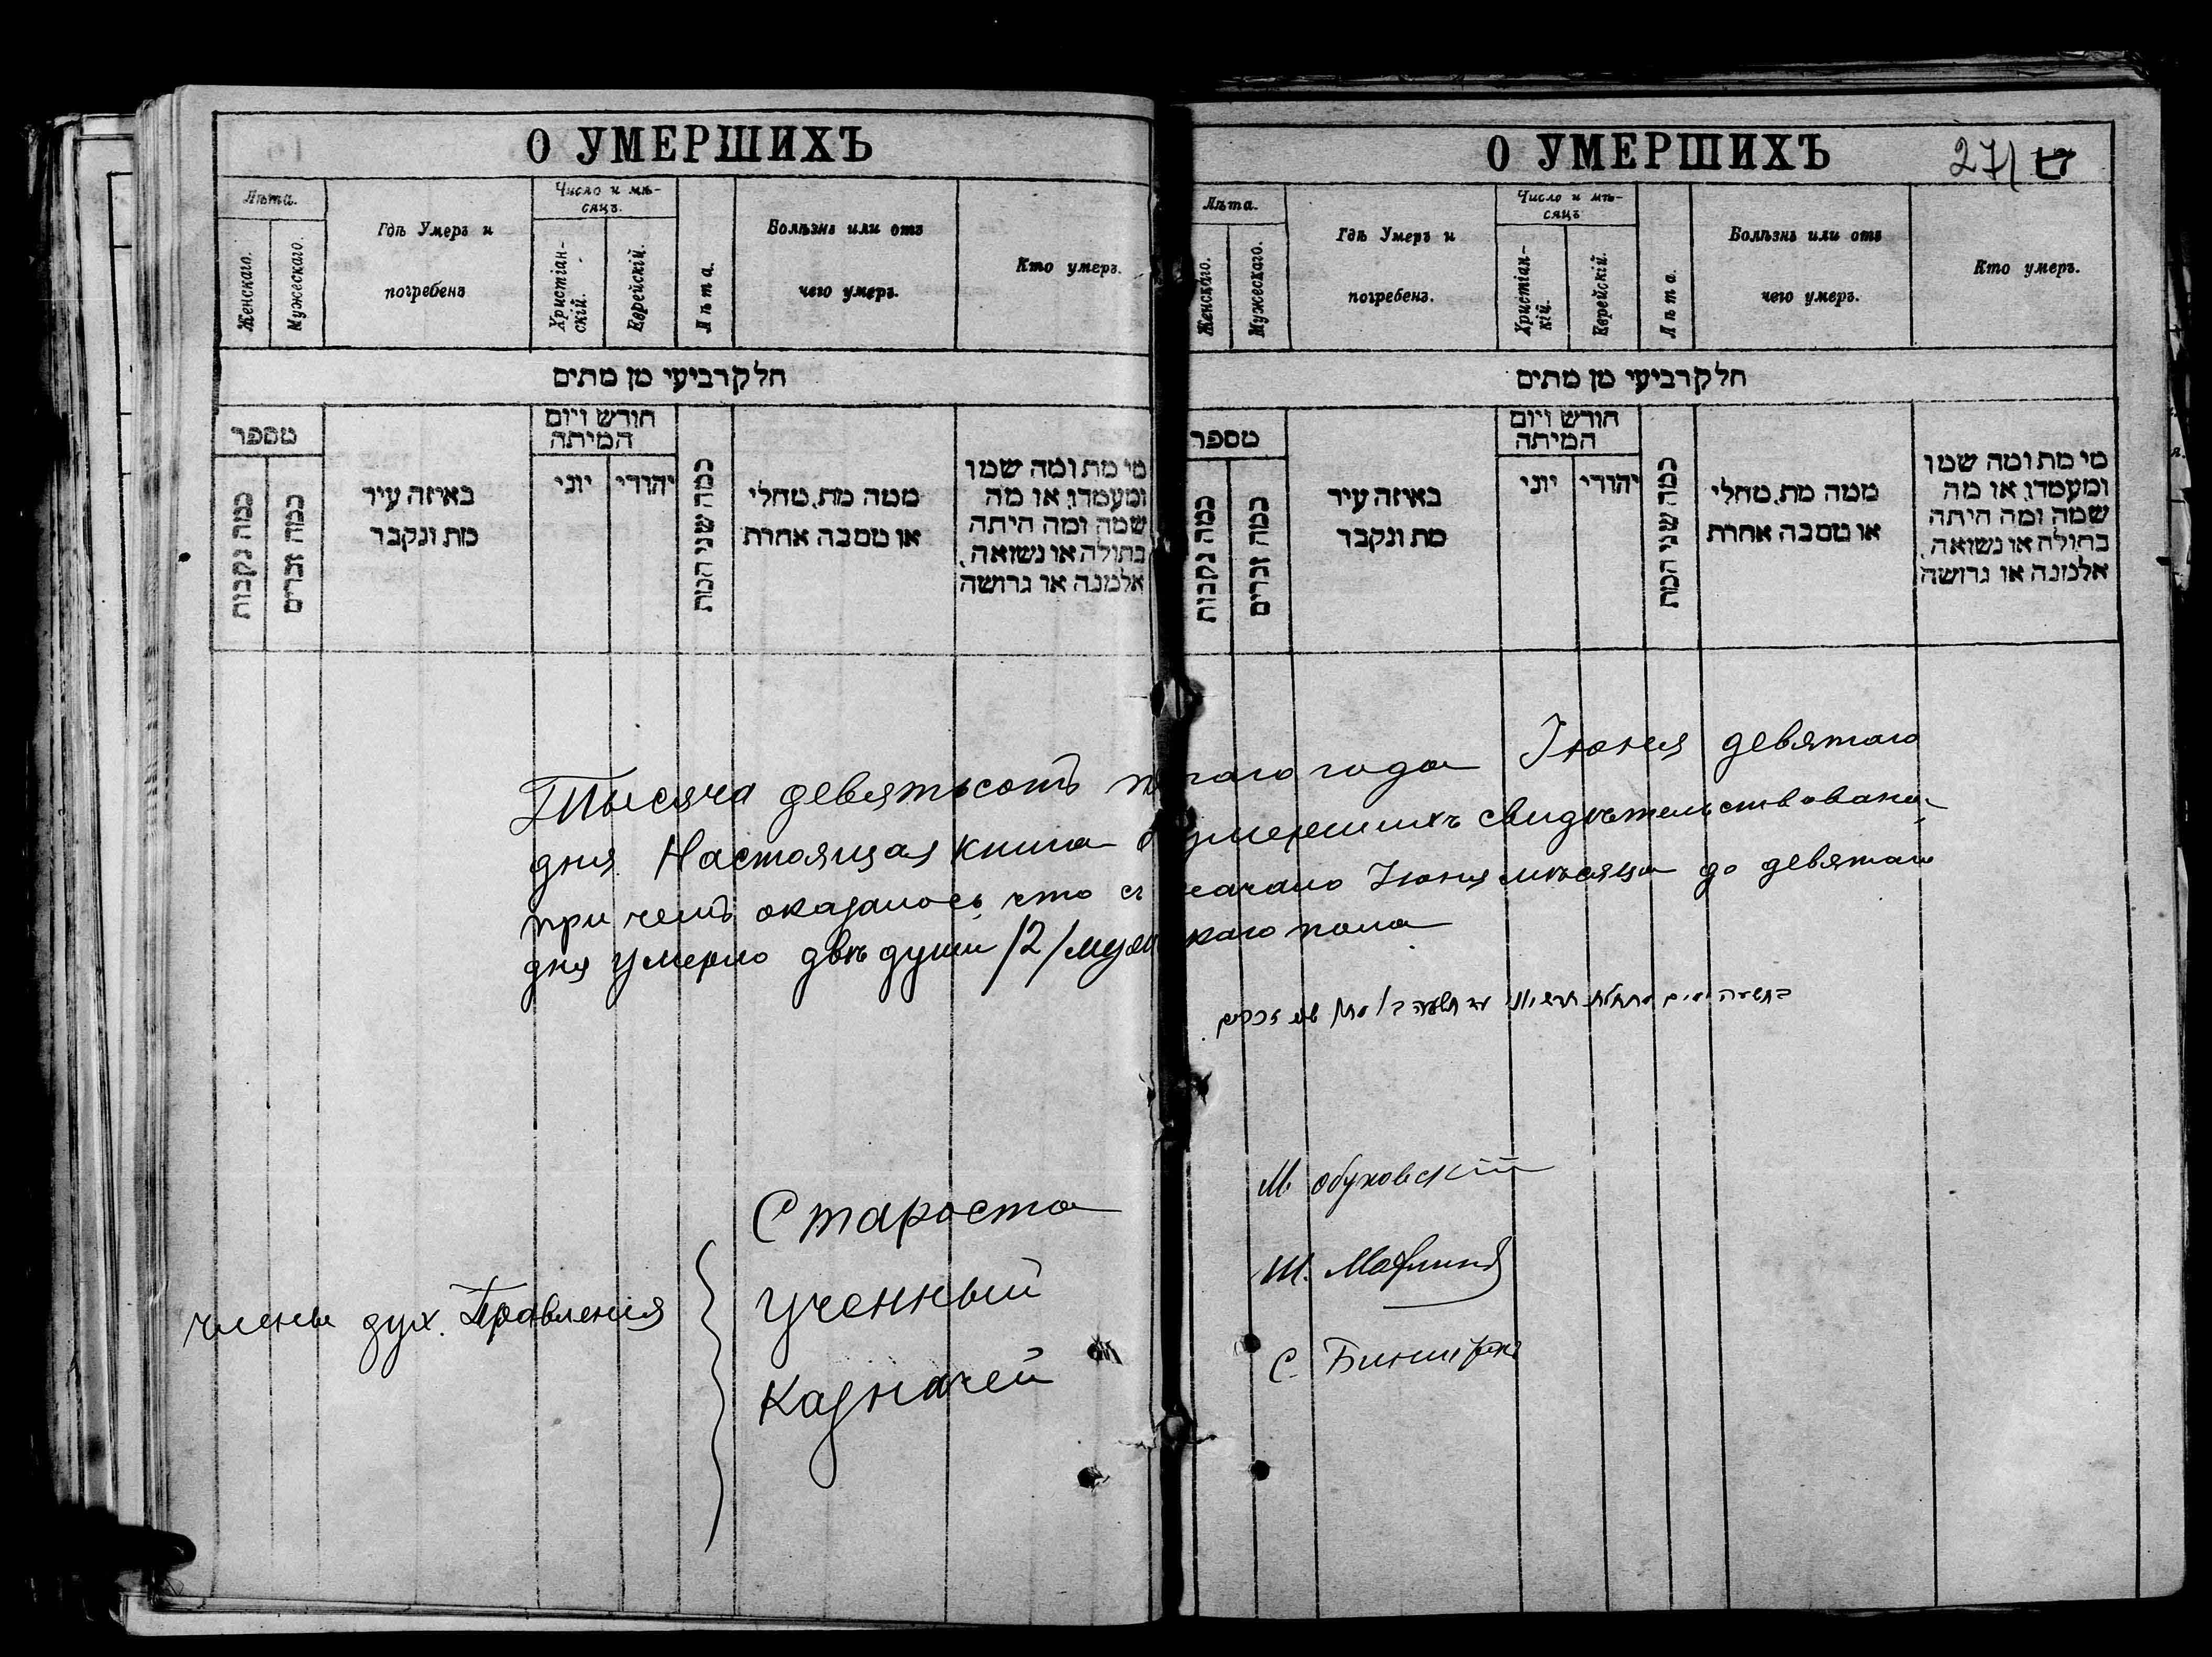 О УМЕРШИХЪ
Лѣта.
Женскаго.
Мужескаго.
Гдѣ Умеръ и
погребенъ
Число и мѣ-
сяцъ.
Христіан-
скій.
Еврейскій.
Лѣта.
Болѣзнь или отъ
чего умеръ.
Кто умеръ.
חלק רביעי מן מתים
מספר
כמה נקבות
כמה זכרים
באיזה עיר
מת ונקבר
חודש ויום
המיתה
יוני
יהודי
כמה שני המת
ממה מת, מחלי
או מסבה אחרת
מי מת ומה שמו
ומעמדו, או מה
שמה ומה היתה
בתולה או נשואה,
אלמנה או גרושה
О УМЕРШИХЪ
27
Лѣта.
Женскаго.
Мужескаго.
Гдѣ Умеръ и
погребенъ.
Число и мѣ-
сяцъ
Христіан-
кій.
Еврейскій.
Лѣта.
Болѣзнь или отъ
чего умеръ.
Кто умеръ.
חלק רביעי מן מתים
מספר
כמה נקבות
כמה זכרים
באיזה עיר
מת ונקבר
חודש ויום
המיתה
יוני
יהודי
כמה שני המת
ממה מת, מחלי
או מסבה אחרת
מי מת ומה שמו
ומעמדו, או מה
שמה ומה היתה
בתולה או נשואה,
אלמנה או גרושה
Тысяча девятьсотъ года Іюня девятаго
дня. Настоящая книга умершихъ свидѣтельствована
при чемъ оказалось, что съ начало Іюня мѣсяца до девятаго
дня умерло двѣ души /2/ мужскаго пола
Староста М Обуховскій
члены дух. Правленія
Ученный Ш.
Казначей С.